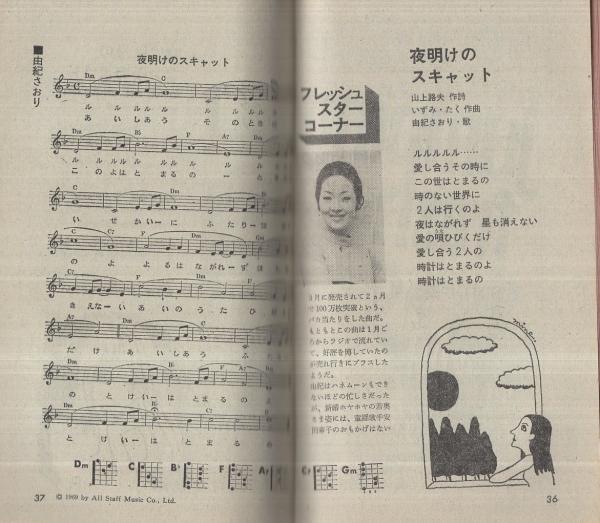 夜明けの
スキャット
山上路夫 作詩
いずみ・たく 作曲
由紀さおり・歌
ルルルルル……
愛し合うその時に
この世はとまるの
時のない世界に
2人は行くのよ
夜はながれず 星も消えない
愛の唄ひびくだけ
愛し合う2人の
時計はとまるのよ
時計はとまるの
フレッシュ
スター
コーナー
月に発売されて2ヵ月
で100万枚突破という、
カ当たりをした曲だ。
もともとこの曲は1月ご
ろからラジオで流れてい
て、好評を博していたの
が売れ行きにプラスした
ようだ。
由紀はハネムーンもでき
ないほどの忙しさだった
が、新婚ホヤホヤの若奥
さま姿には、童謡歌手安
田章子のおもかげはない
36
■由紀さおり
夜明けのスキャット
Dm C
ル ル ルル ル ル ルル ル
あ い し あ う そ の と き
Dm B♭ F A7 Dm
ル ル ルル ル ル ル ル
こ の よ は と ま る の ー と
C Dm
い せ か い ー に ふ た り ー
C F Dm Gm
の よ よ る は な が れ ー ず
C7 F C7 F
き え な ー い あ い の う た ひ
A7 Dm C
だ け あ い し あ う ふ
Dm B♭ F A7 Dm
の と け い ー は と ま る の よ
と け い ー は と ま る
Dm C B♭ F A7 C7 Gm
37 © 1969 by All Staff Music Co., Ltd.